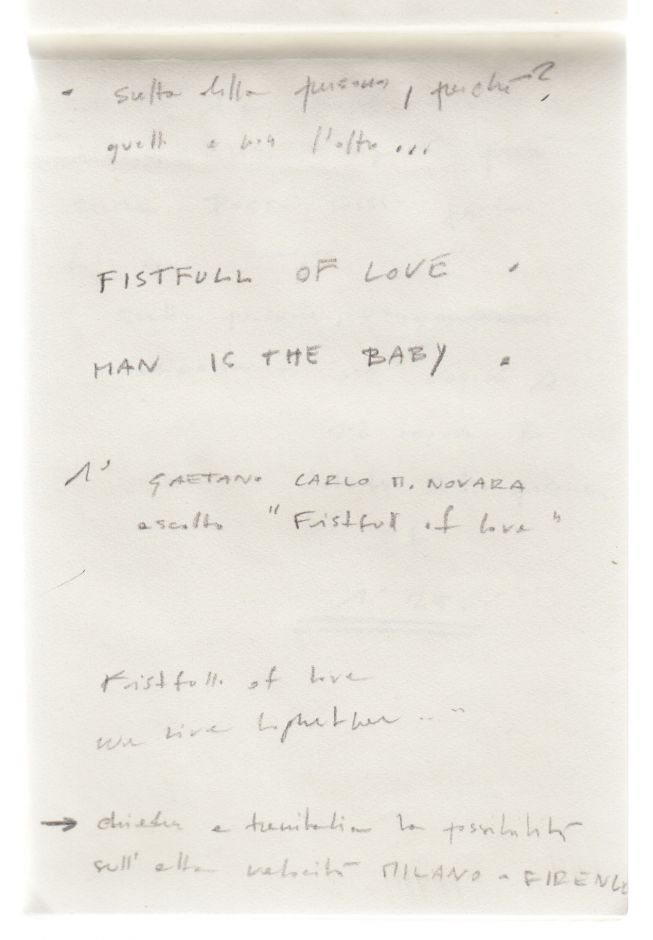 • scelta della persona, perché?
quella e non l'altra...
FISTFULL OF LOVE •
MAN IS THE BABY •
1' GAETANO CARLO M. NOVARA
ascolto "Fistfull of love"
Fistfull of love
we live toghether..."
→ chiedere a trenitalia la possibilità
sull'alta velocità MILANO - FIRENZE